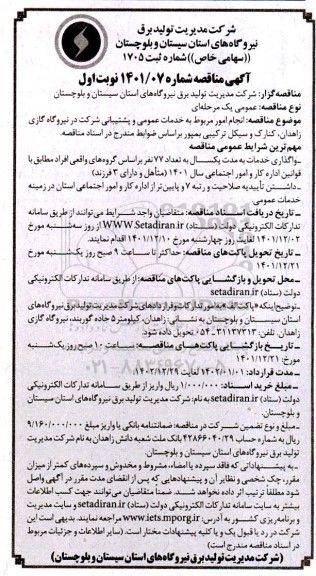 شرکت مدیریت تولید برق
نیروگاه‌های استان سیستان و بلوچستان
((سهامی خاص)) شماره ثبت ۱۷۰۵
آگهی مناقصه شماره ۱۴۰۱/۰۷ نوبت اول
مناقصه گزار: شرکت مدیریت تولید برق نیروگاه‌های استان سیستان و بلوچستان
نوع مناقصه: عمومی یک مرحله‌ای
موضوع مناقصه: انجام امور مربوط به خدمات عمومی و پشتیبانی شرکت در نیروگاه گازی
زاهدان، کنارک و سیکل ترکیبی بمپور براساس ضوابط مندرج در اسناد مناقصه.
مهم‌ترین شرایط عمومی مناقصه
ـ واگذاری خدمات به مدت یکسال به تعداد ۷۷ نفر براساس گروه‌های واقعی افراد مطابق با
قوانین اداره کار و امور اجتماعی سال ۱۴۰۱ (متأهل و دارای ۳ فرزند)
ـ داشتن تأییدیه صلاحیت و رتبه ۷ و پایین‌تر از اداره کار و امور اجتماعی استان در زمینه
خدمات عمومی.
ـ تاریخ دریافت اسناد مناقصه: متقاضیان واجد شرایط می‌توانند از طریق سامانه
تدارکات الکترونیکی دولت (ستاد) WWW.Setadiran.ir از روز سه‌شنبه مورخ
۱۴۰۱/۱۲/۰۲ لغایت روز چهارشنبه مورخ ۱۴۰۱/۱۲/۱۰ اقدام نمایند.
ـ تاریخ تحویل پاکت‌های مناقصه: حداکثر تا ساعت ۹ صبح روز یک‌شنبه مورخ
۱۴۰۱/۱۲/۲۱
ـ محل تحویل و بازگشایی پاکت‌های مناقصه: از طریق سامانه تدارکات الکترونیکی
دولت (ستاد) setadiran.ir
ـ توضیح اینکه «پاکت الف» به امور تدارکات و قراردادهای شرکت مدیریت تولید برق نیروگاه‌های
استان سیستان و بلوچستان به نشانی: زاهدان، کیلومتر ۵ جاده گوربند، نیروگاه گازی
زاهدان، تلفن: ۳۱۱۳۷۳۱۲ـ۰۵۴ تحویل داده شود.
ـ تاریخ بازگشایی پاکت‌های مناقصه: ساعت ۱۰ صبح روز یک‌شنبه
مورخ: ۱۴۰۱/۱۲/۲۱
ـ مدت قرارداد: ۱۴۰۲/۰۱/۰۱ لغایت ۱۴۰۲/۱۲/۲۹.
ـ مبلغ خرید اسناد: ۱/۰۰۰/۰۰۰ ریال واریز از طریق سامانه تدارکات الکترونیکی
دولت (ستاد) setadiran.ir به نام: شرکت مدیریت تولید برق نیروگاه‌های استان سیستان
و بلوچستان
ـ مبلغ و نوع تضمین شرکت در مناقصه: ضمانتنامه بانکی یا واریز مبلغ ۹/۱۶۰/۰۰۰/۰۰۰
ریال به شماره حساب ۴۲۸۶۶۰۴۰/۲۹ بانک ملت شعبه دانش زاهدان به نام شرکت مدیریت
تولید برق نیروگاه‌های استان سیستان و بلوچستان.
ـ به پیشنهاداتی که فاقد سپرده یا امضاء، مشروط و مخدوش و سپرده‌های کمتر از میزان
مقرر، چک شخصی و نظایر آن و پیشنهادهایی که پس از انقضای مدت مقرر در آگهی واصل
شود مطلقاً ترتیب اثر داده نخواهد شد. ضمنا متقاضیان می‌توانند جهت کسب اطلاعات
بیشتر به سایت سامانه تدارکات الکترونیکی دولت (ستاد) setadiran.ir و سایت مدیریت
و برنامه‌ریزی کشور به آدرس: www.iets.mporg.ir مراجعه نمایند. بدیهی است این
شرکت در رد یا قبول یک و یا کلیه پیشنهادات مختار است. (سایر اطلاعات و جزئیات مربوط
در اسناد مناقصه مندرج است)
(شرکت مدیریت تولید برق نیروگاه‌های استان سیستان و بلوچستان)